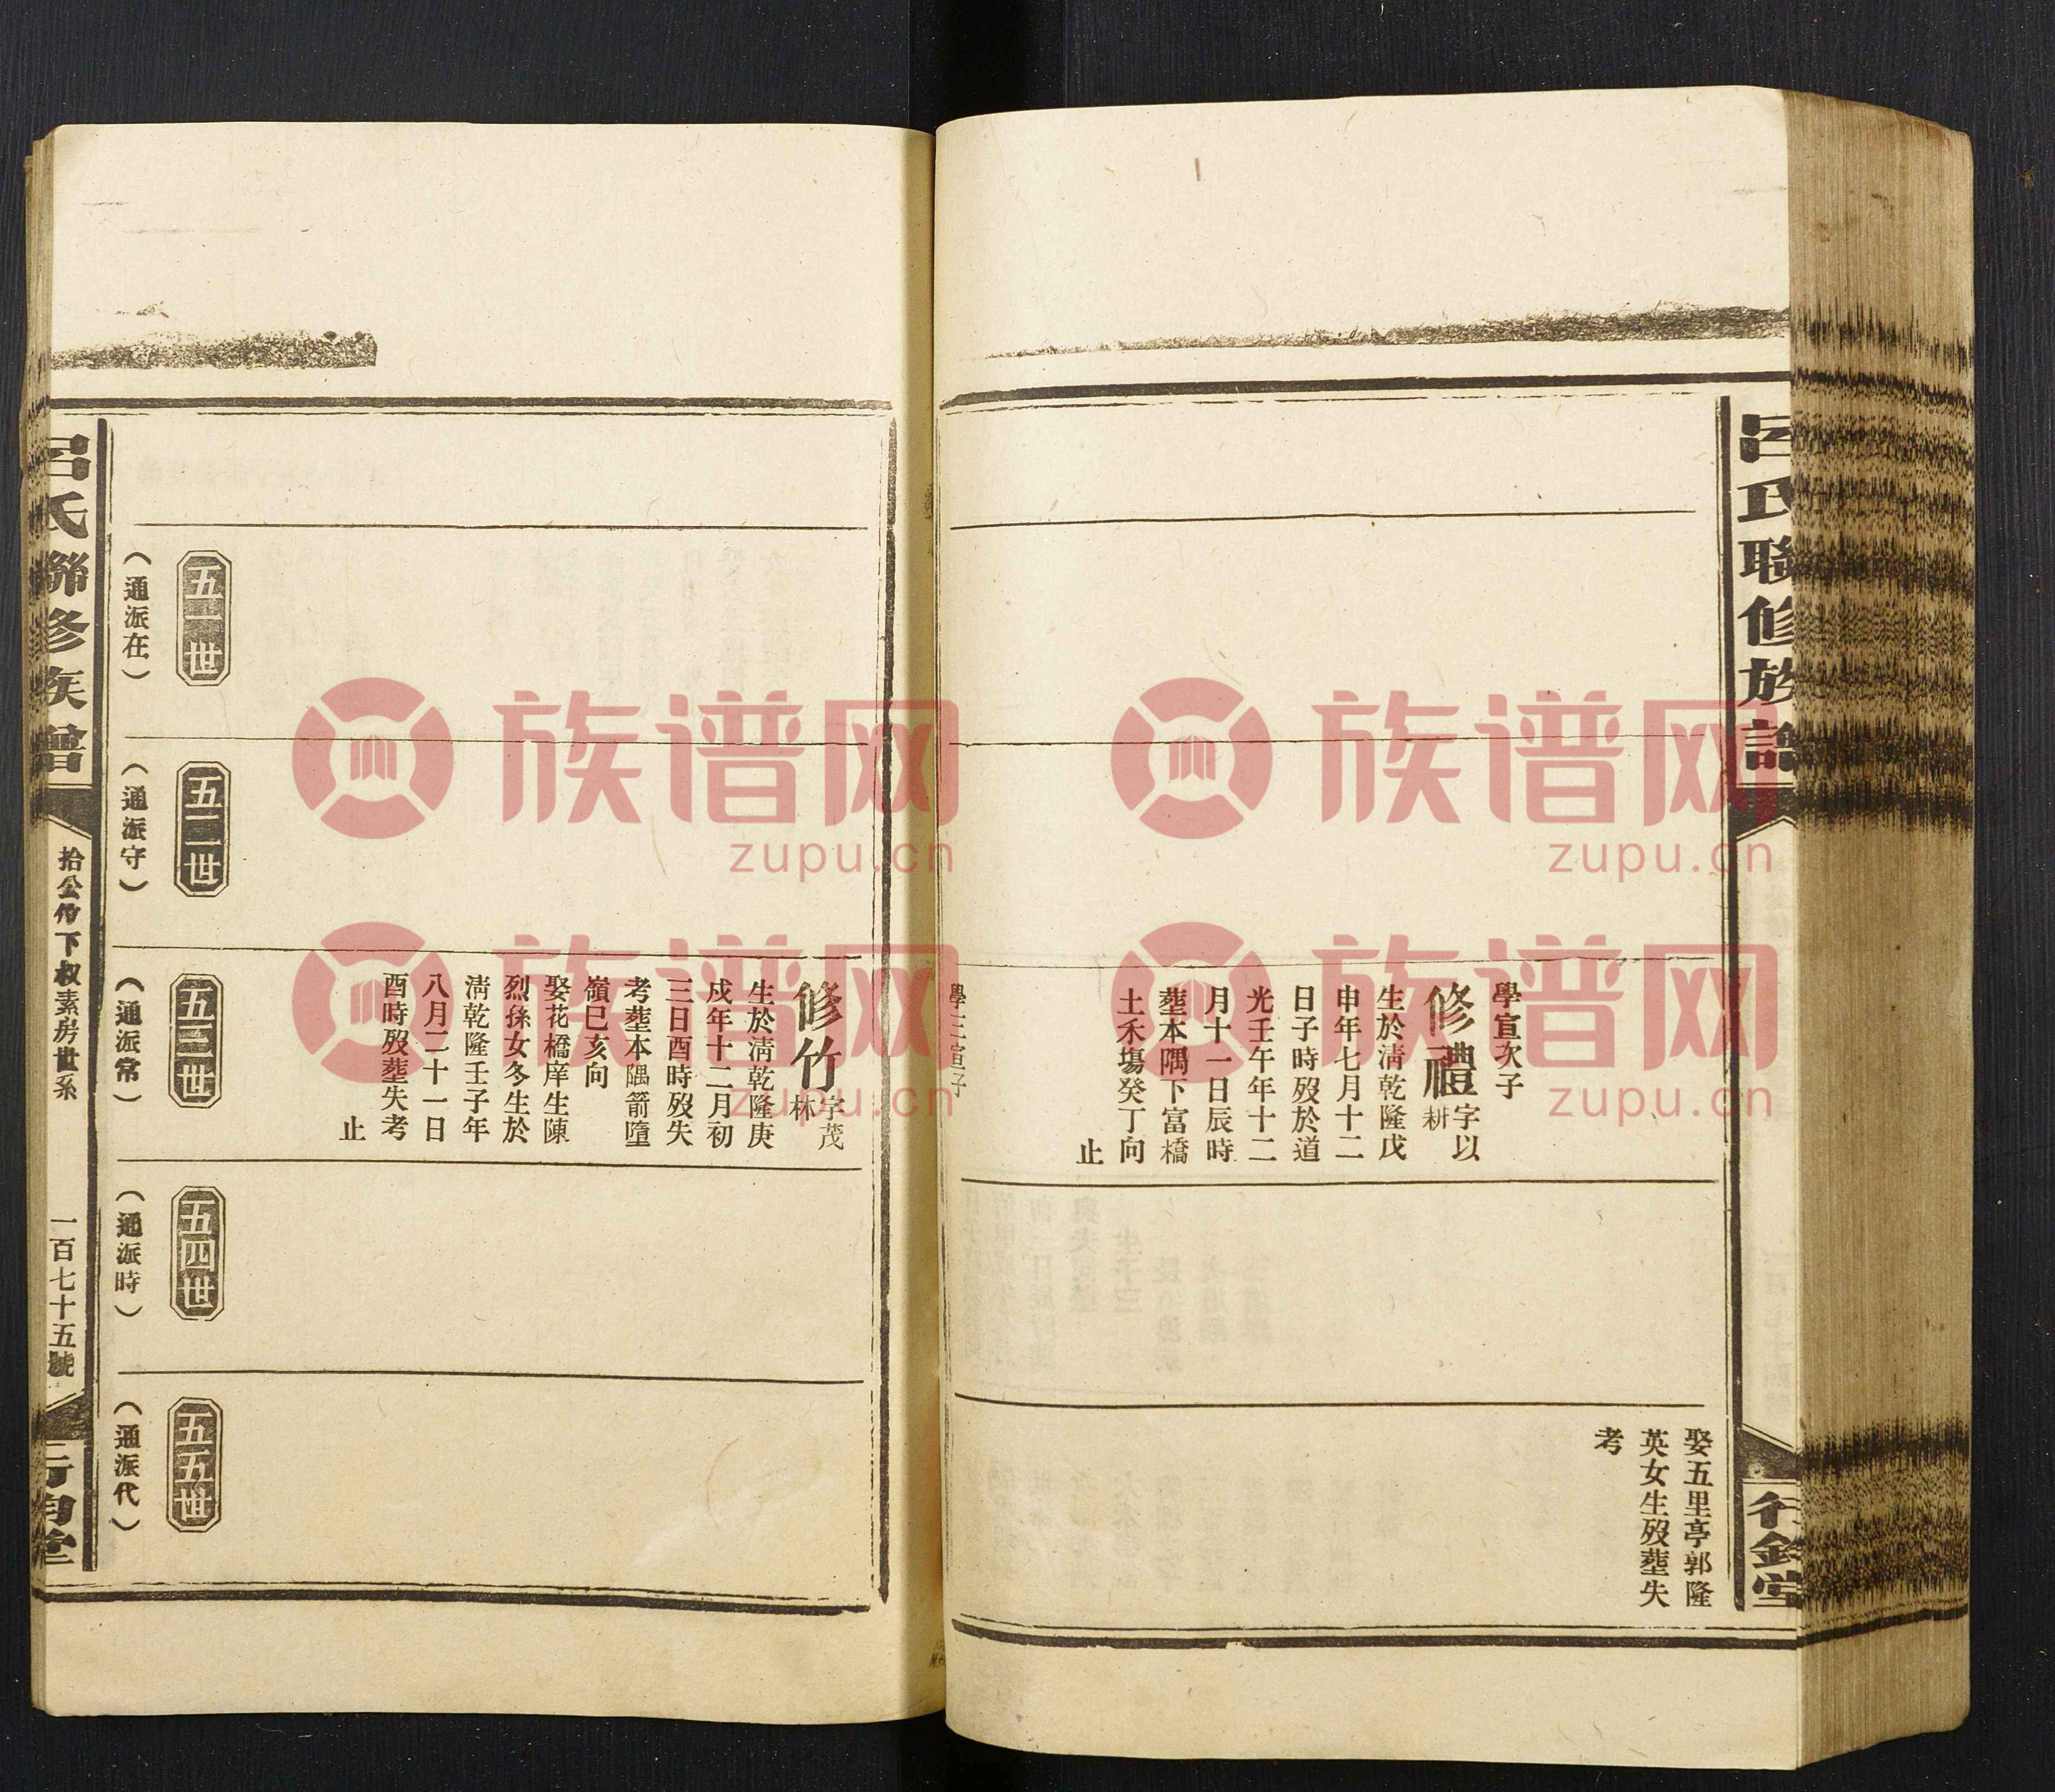 呂氏聯修族譜
行鈞堂
娶五里亭郭隆
英女生歿塟失
考
學宣次子
修禮字以耕
生於淸乾隆戊
申年七月十二
日子時歿於道
光壬午年十二
月十一日辰時
塟本隅下富橋
土禾塲癸丁向
止
學宣三子
修竹字茂林
生於淸乾隆庚
戍年十二月初
三日酉時歿失
考塟本隅箭墮
嶺巳亥向
娶花橋庠生陳
烈孫女冬生於
淸乾隆壬子年
八月二十一日
酉時歿塟失考
止
五一世
(通派在)
五二世
(通派守)
五三世
(通派常)
五四世
(通派時)
五五世
(通派代)
呂氏聯修族譜
拾公位下叔素房世系
一百七十五號
行鈞堂
族谱网
zupu.cn
族谱网
zupu.cn
族谱网
zupu.cn
族谱网
zupu.cn